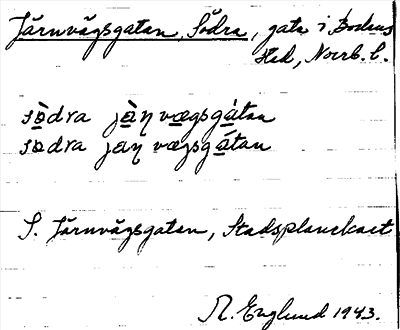 Järnvägsgatan, Södra, gata i Bodens
stad, Norrb. l.
södra jæ̀ɳvægsgátan
södra jæɳvægsgátan
S. Järnvägsgatan, Stadsplanekart
R. Englund 1943.